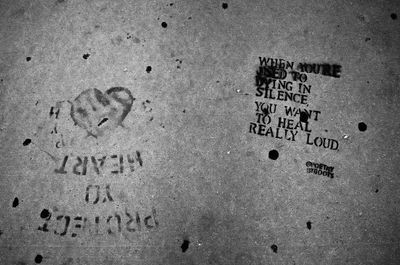 PROTECT
YO
HEART
WHEN YOU'RE
USED TO
DYING IN
SILENCE,
YOU WANT
TO HEAL
REALLY LOUD